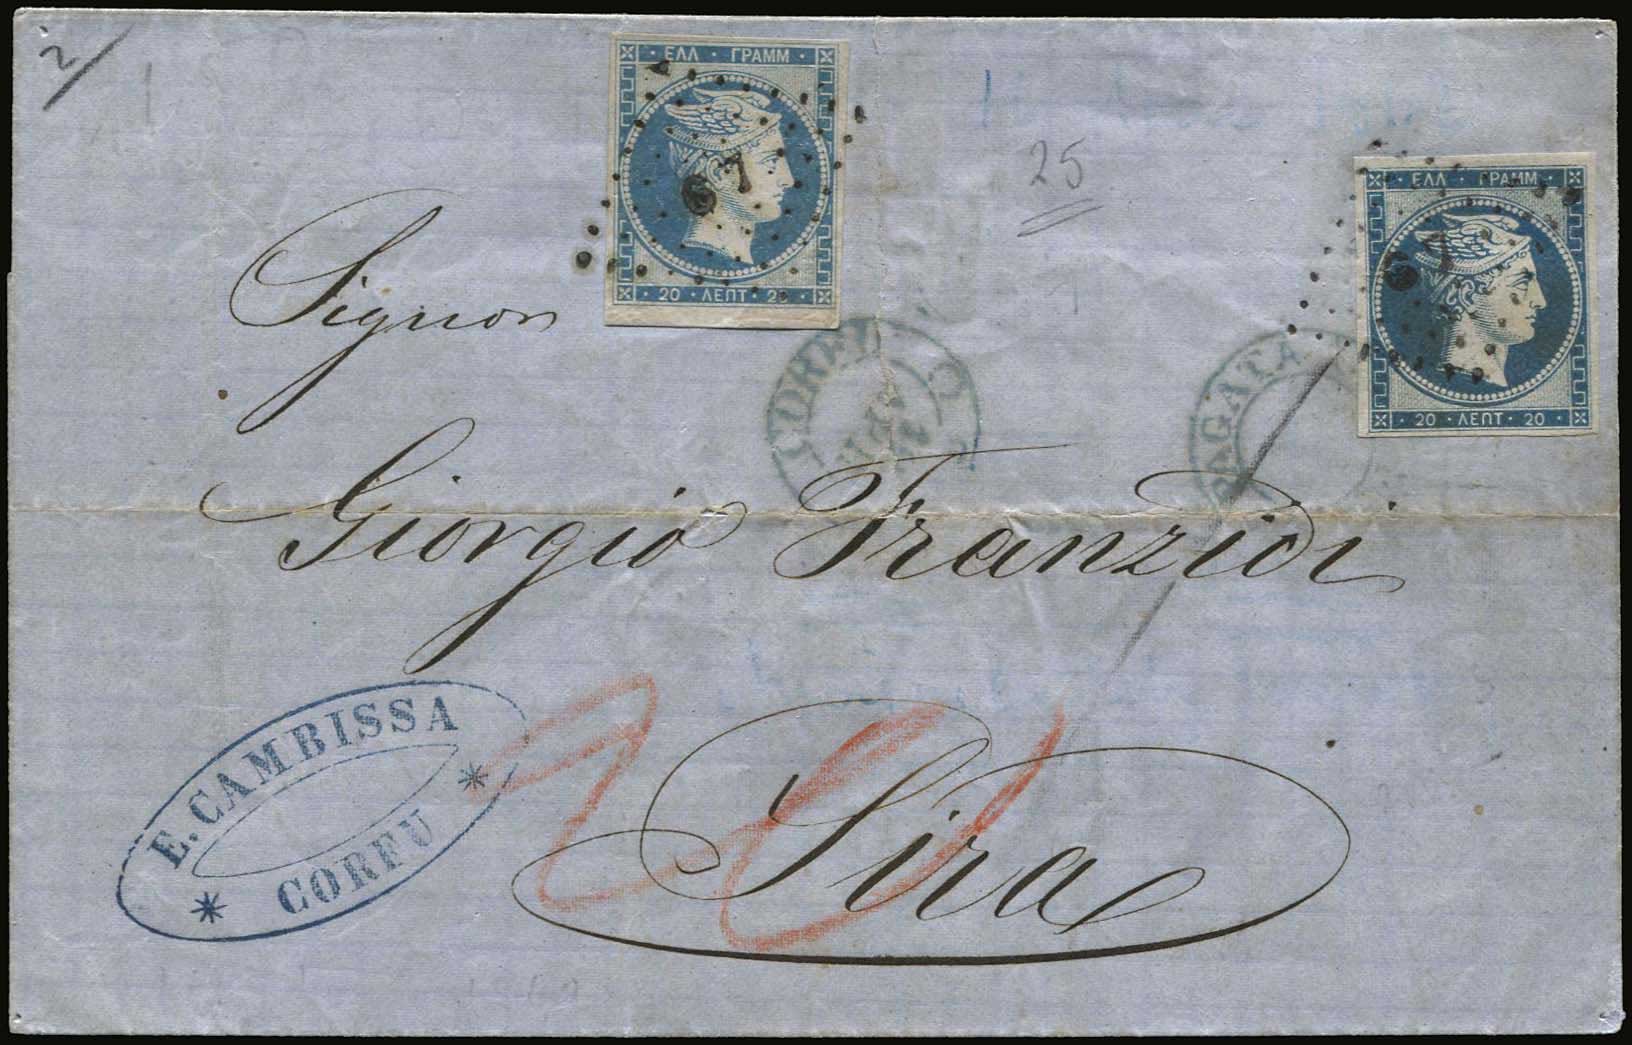 2
ΕΛΛ · ΓΡΑΜΜ ·
67
20 · ΛΕΠΤ · 20
25
ΕΛΛ · ΓΡΑΜΜ ·
67
20 · ΛΕΠΤ · 20
Signor
CORFU
Giorgio Franzidi
E. CAMBISSA
* CORFU *
20
Sira